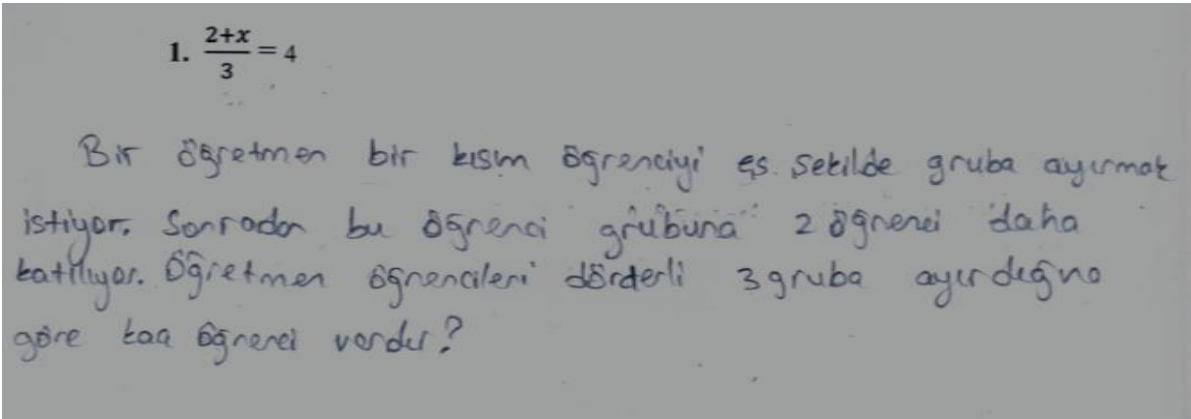 1. 2+x/3 = 4
Bir öğretmen bir kısım öğrenciyi eş şekilde gruba ayırmak
istiyor. Sonradan bu öğrenci grubuna 2 öğrenci daha
katılıyor. Öğretmen öğrencileri dörderli 3 gruba ayırdığına
göre kaç öğrenci vardır?